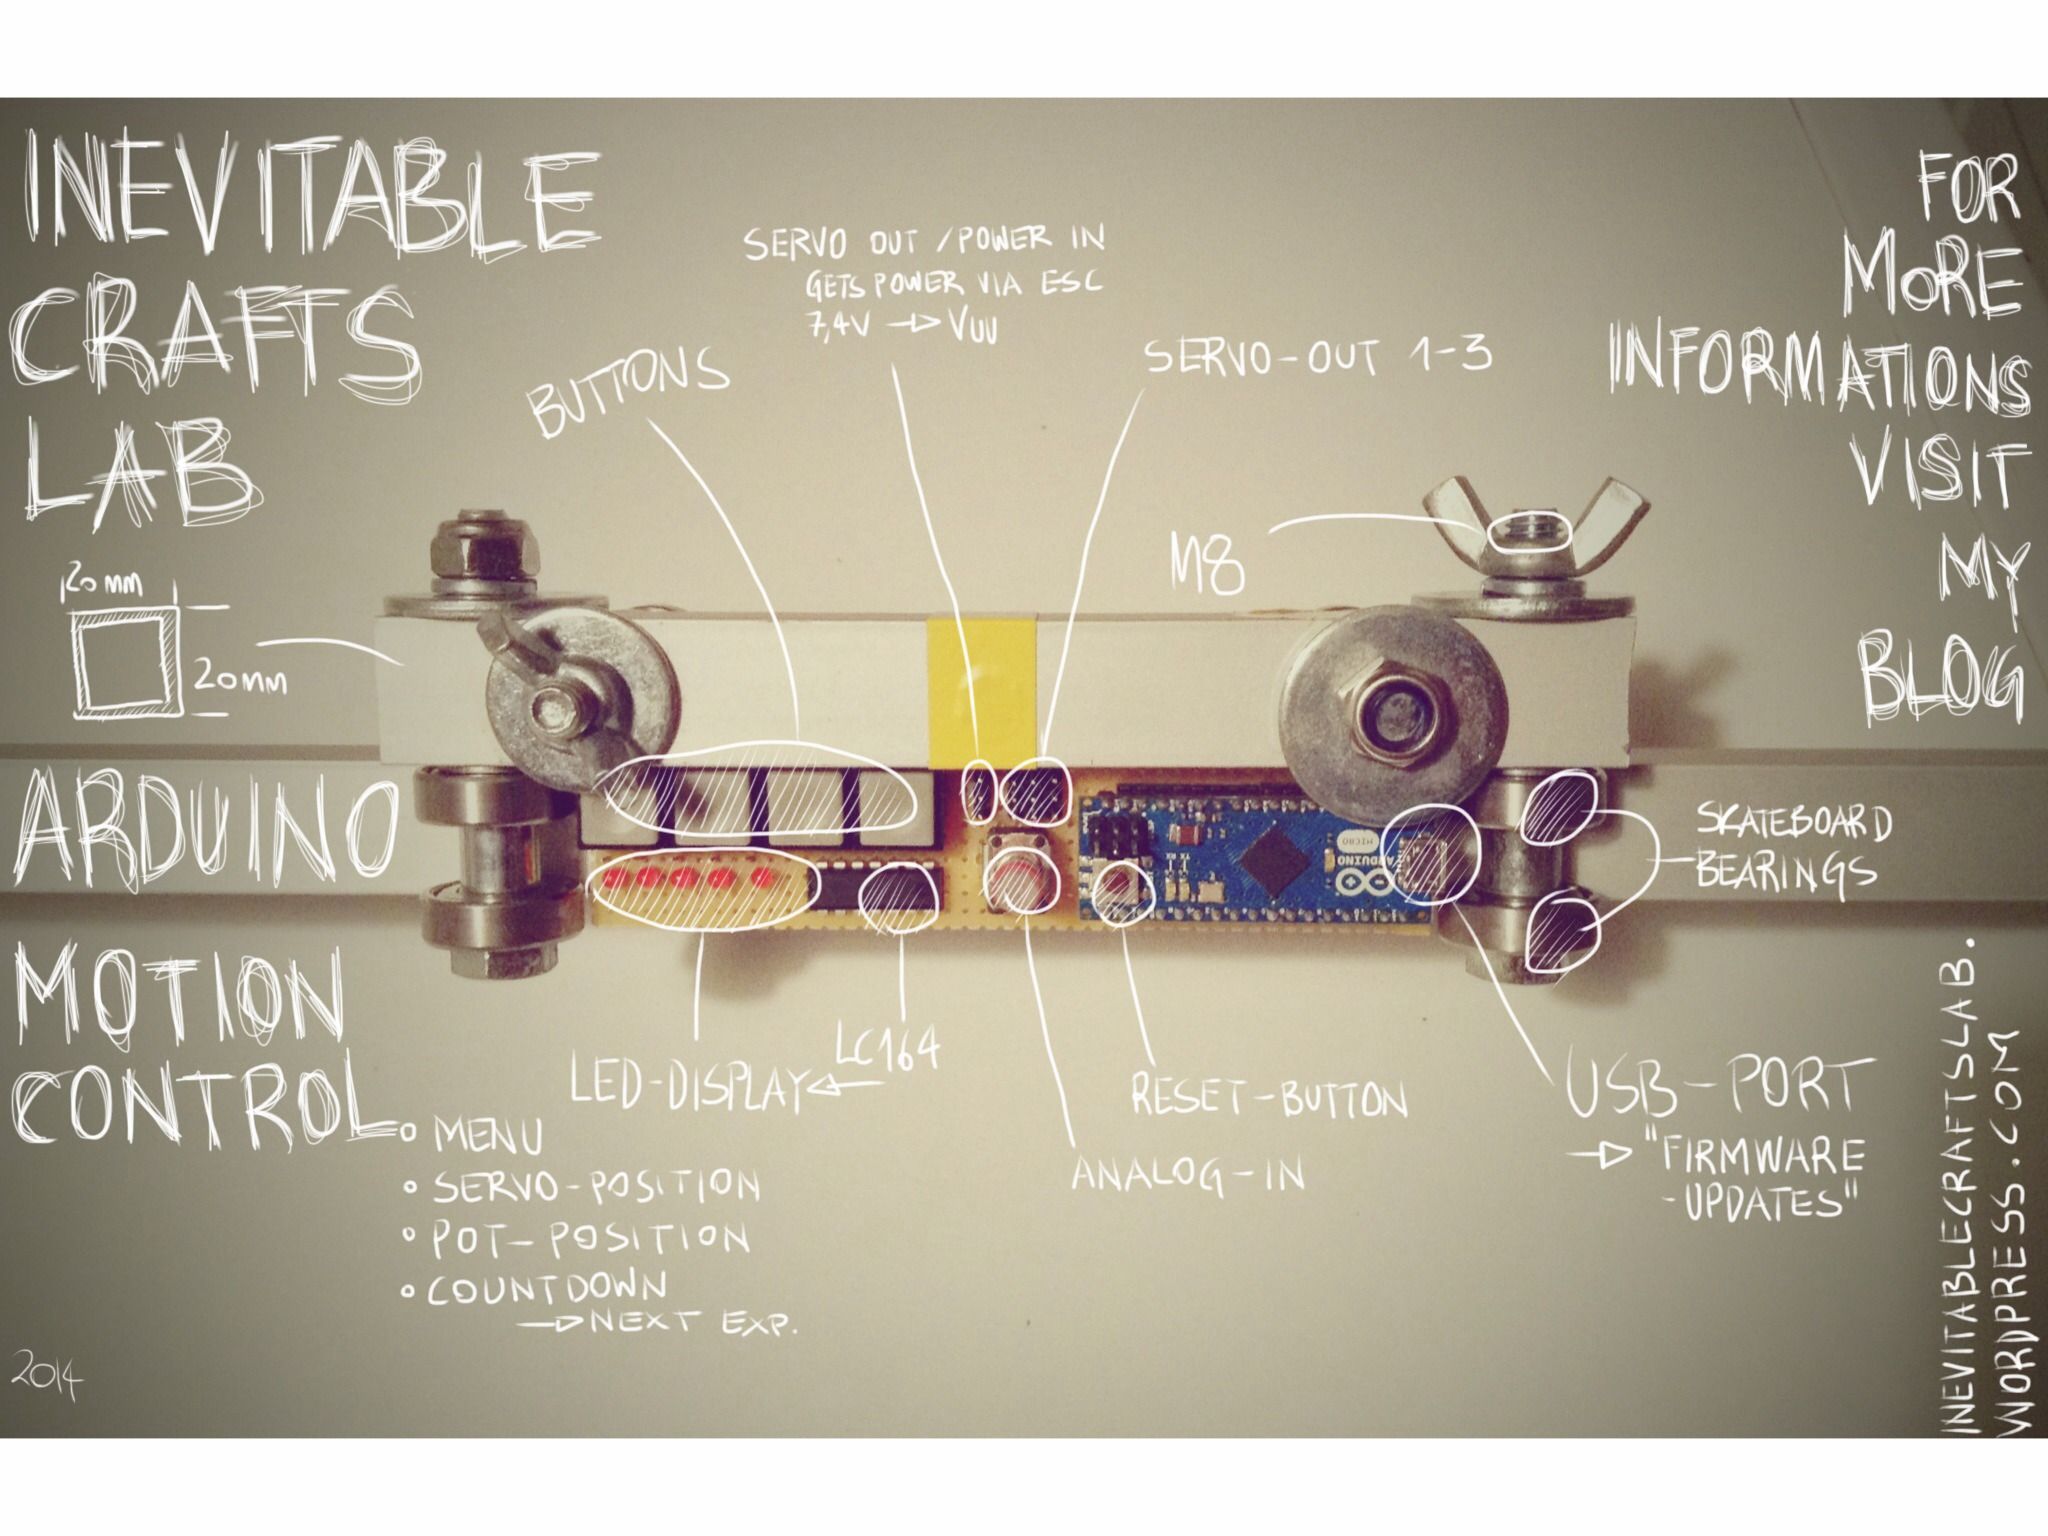 INEVITABLE
CRAFTS
LAB
20mm
20mm
ARDUINO
MOTION
CONTROL
2014
BUTTONS
SERVO OUT / POWER IN
GETS POWER VIA ESC
7,4V → VUU
SERVO-OUT 1-3
M8
FOR
MORE
INFORMATIONS
VISIT
MY
BLOG
SKATEBOARD
BEARINGS
MICRO
ARDUINO
TX
RX
LED-DISPLAY ← LC164
• MENU
• SERVO-POSITION
• POT-POSITION
• COUNTDOWN
→ NEXT EXP.
ANALOG-IN
RESET-BUTTON
USB-PORT
→ "FIRMWARE
-UPDATES"
INEVITABLECRAFTSLAB.
WORDPRESS.COM